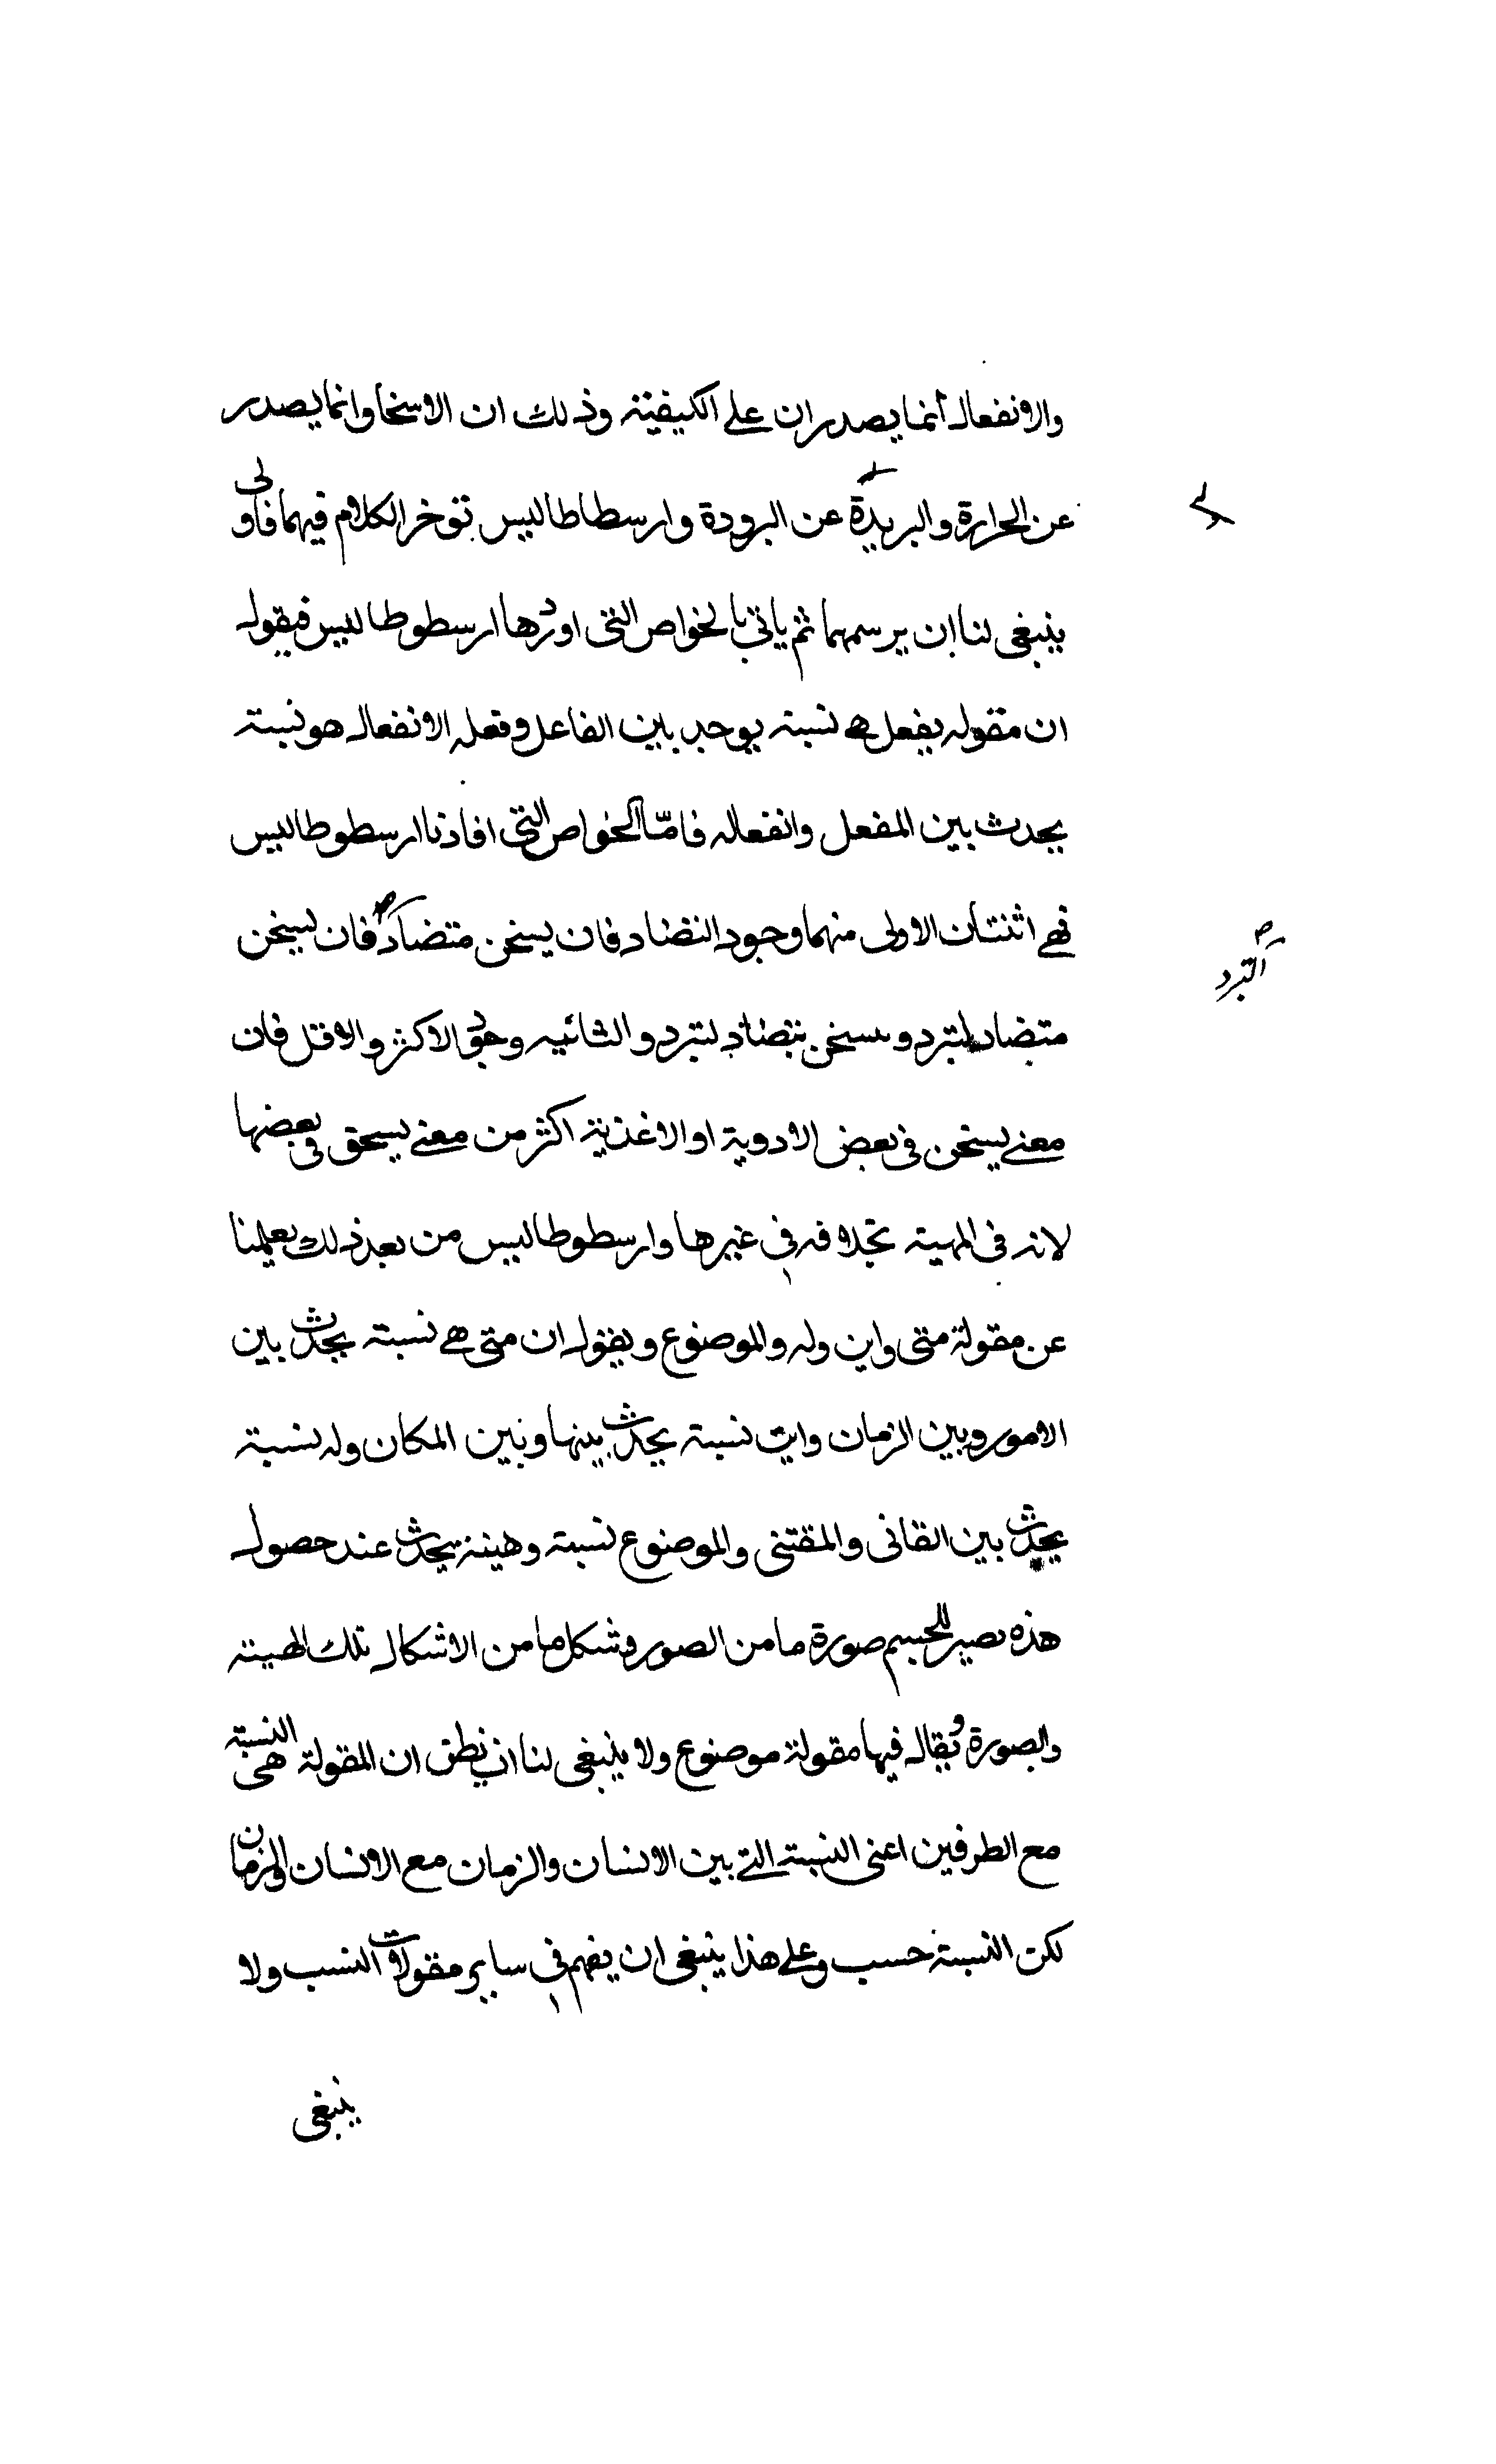 والانفعال انما يصدران على الكيفية وذلك ان الاسخا وانما يصدر
عن الحرارة والبريدة عن البرودة وارسطاطاليس توخر الكلام فيهما فاولى
ينبغى لنا ان يرسمهما ثم ياتى بالخواص التى اوردها ارسطوطاليس فيقول
ان مقوله يفعل هى نسبة يوجد بين الفاعل وفعله الانفعال هو نسبة
يحدث بين المفعل وانفعاله فامّا الخواص التى افاذنا ارسطوطاليس
فهى اثنتان الاولى منهما وجود التضاد فان يسخن متضاد فان يسخن
التبرد
متضاد لتبرد ويسخن يتضاد لتبرد والثانيه وجود الاكثر والاقل فان
معنى يسخن فى بعض الادوية او الاغذية اكثر من معنى يسحق فى بعضها
لانه فى المهية بخلافه فى غيرها وارسطوطاليس من بعد ذلك يعلمنا
عن مقولة متى واين وله والموضوع ويقول ان متى هى نسبة يحدث بين
الامور وبين الزمان واين نسبة يحدث بينها وبين المكان وله نسبة
يحدث بين القانى والمقتنى والموضوع نسبة وهيئة يحدث عند حصول
هذه يصير للجسم صورة ما من الصور وشكل ما من الاشكال تلك الهيئة
والصورة ويقال فيها مقولة موضوع ولا ينبغى لنا ان نظن ان المقولة هى النسبة
مع الطرفين اعنى النسبة التى بين الانسان والزمان مع الانسان والزمان
لكن النسبة حسب وعلى هذا ينبغى ان يفهم فى ساير مقولات النسب ولا
ينبغى